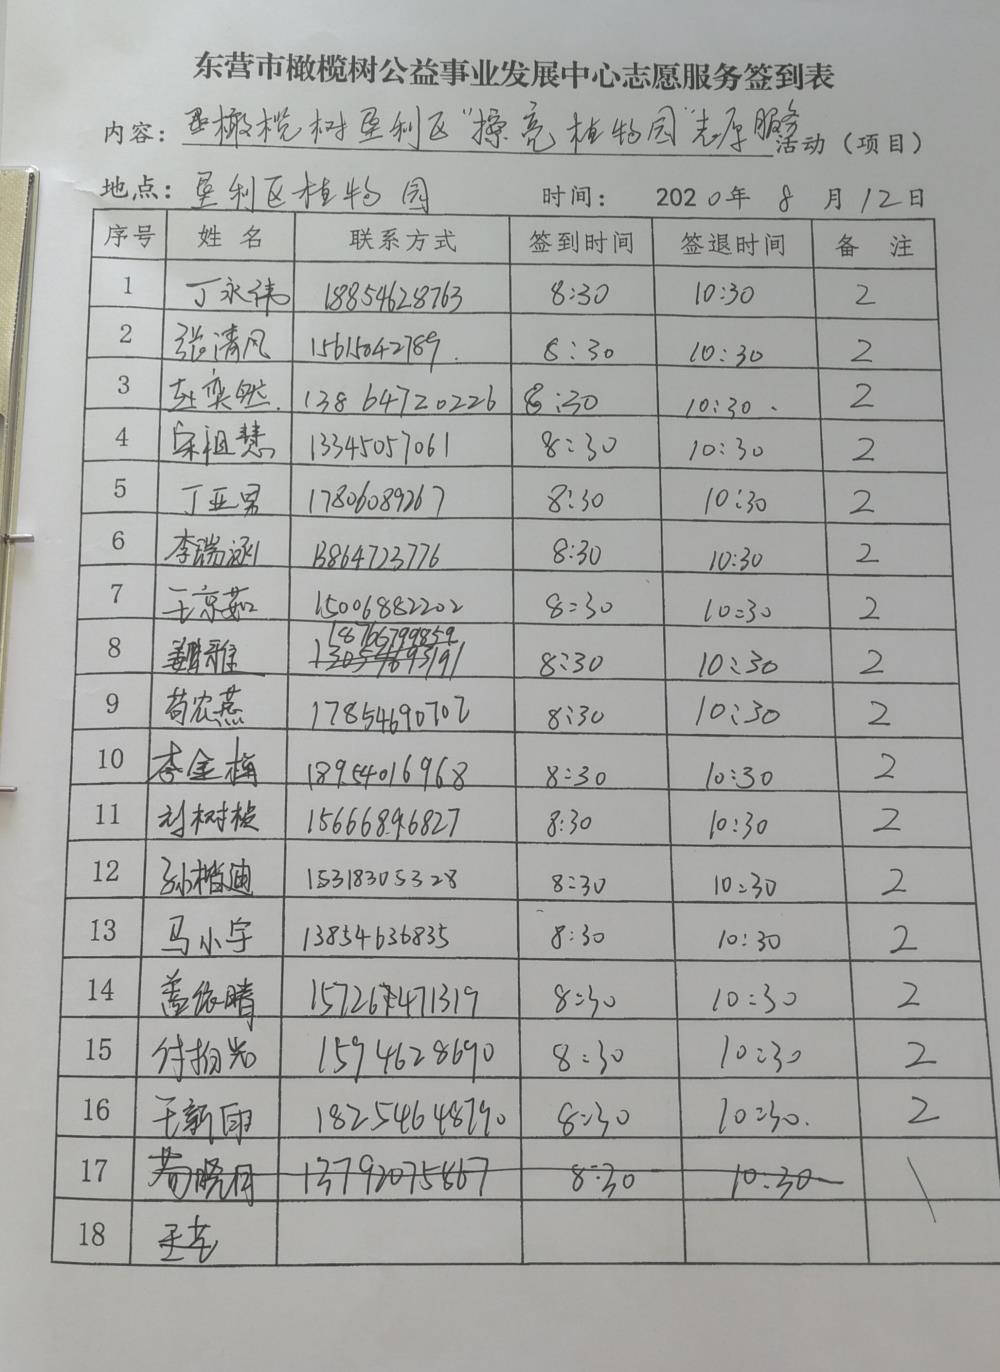 东营市橄榄树公益事业发展中心志愿服务签到表
内容：橄榄树垦利区“擦亮植物园”志愿服务活动（项目）
地点：垦利区植物园 时间：2020年8月12日
序号 姓名 联系方式 签到时间 签退时间 备注
1 丁永祎 18854628763 8:30 10:30 2
2 张清风 15615042789 8:30 10:30 2
3 赵奕然 13864720226 8:30 10:30 2
4 宋祖慧 13345057061 8:30 10:30 2
5 丁亚男 17806089267 8:30 10:30 2
6 李瑞涵 13864723776 8:30 10:30 2
7 王京茹 15006882202 8:30 10:30 2
8 18766799859 8:30 10:30 2
9 苟农燕 17854690702 8:30 10:30 2
10 李金梅 18954016968 8:30 10:30 2
11 刘树桢 15666896827 8:30 10:30 2
12 孙楷迪 15318305328 8:30 10:30 2
13 马小宇 13854636835 8:30 10:30 2
14 盖依晴 15726471319 8:30 10:30 2
15 1594628690 8:30 10:30 2
16 王新雨 18254648790 8:30 10:30 2
17 苟晓月 13792075867 8:30 10:30
18